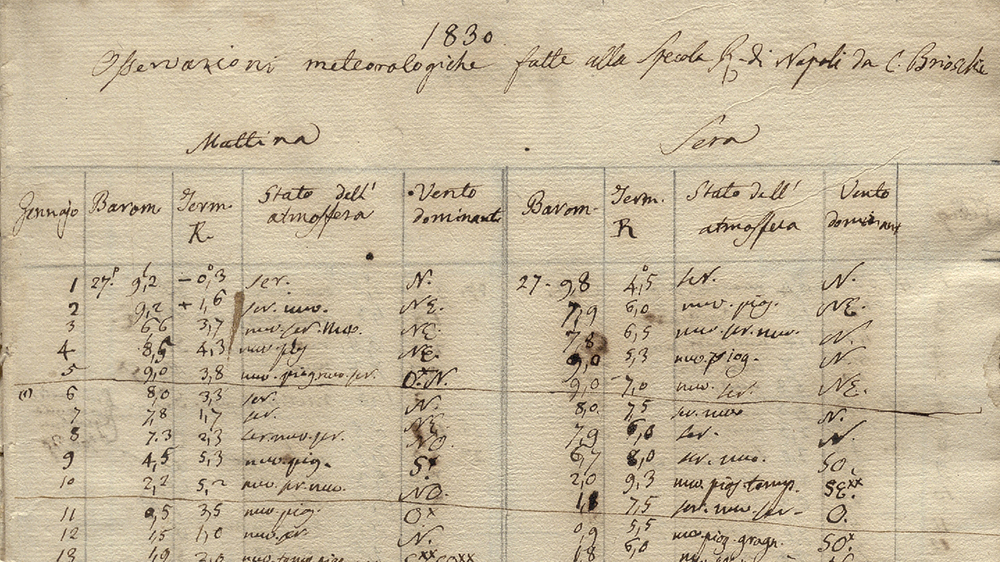 1830
Osservazioni meteorologiche fatte alla Specola R. di Napoli da C. Brioschi
Mattina Sera
Gennajo Barom. Term. R. Stato dell' atmosfera Vento dominante Barom. Term. R Stato dell' atmosfera Vento dominante
1 27.p 9,2l −0°,3 ser. N. 27 - 9,8 4°,5 ser. N.
2 9,2 +1,6 ser. nuv. NE. 7,9 6,0 nuv. piog. NE.
3 6,6 3,7 nuv. ser. nuv. NE. 7,8 6,5 nuv. ser. nuv. N.
4 8,5 4,3 nuv. piog NE. 9,0 5,3 nuv. piog. N
5 9,0 3,8 nuv. piog nuv. ser. O.* N. 9,0 7,0 nuv. ser. NE.
(1) 6 8,0 3,3 ser. N. 8,0 7,5 ser. nuv N.
7 7,8 1,7 ser. NE 7,9 ser. N
8 7.3 2,3 ser. nuv. ser. NO. 6,7 8,0 ser. nuv. SO.
9 4,5 5,3 nuv. piog. S.x 2,0 9,3 nuv. piog temp. SE.xx
10 2,2 5,2 nuv. ser. nuv. NO. 1,8 7,5 ser. nuv. ser. O.
11 0,5 3,5 nuv. piog. Ox 0,9 5,5 nuv. piog. gragn. SO.x
12 1,5 1,0 nuv. ser. N. 1,8 6,0
13 1,9 2,0 nuv. temp. piog.